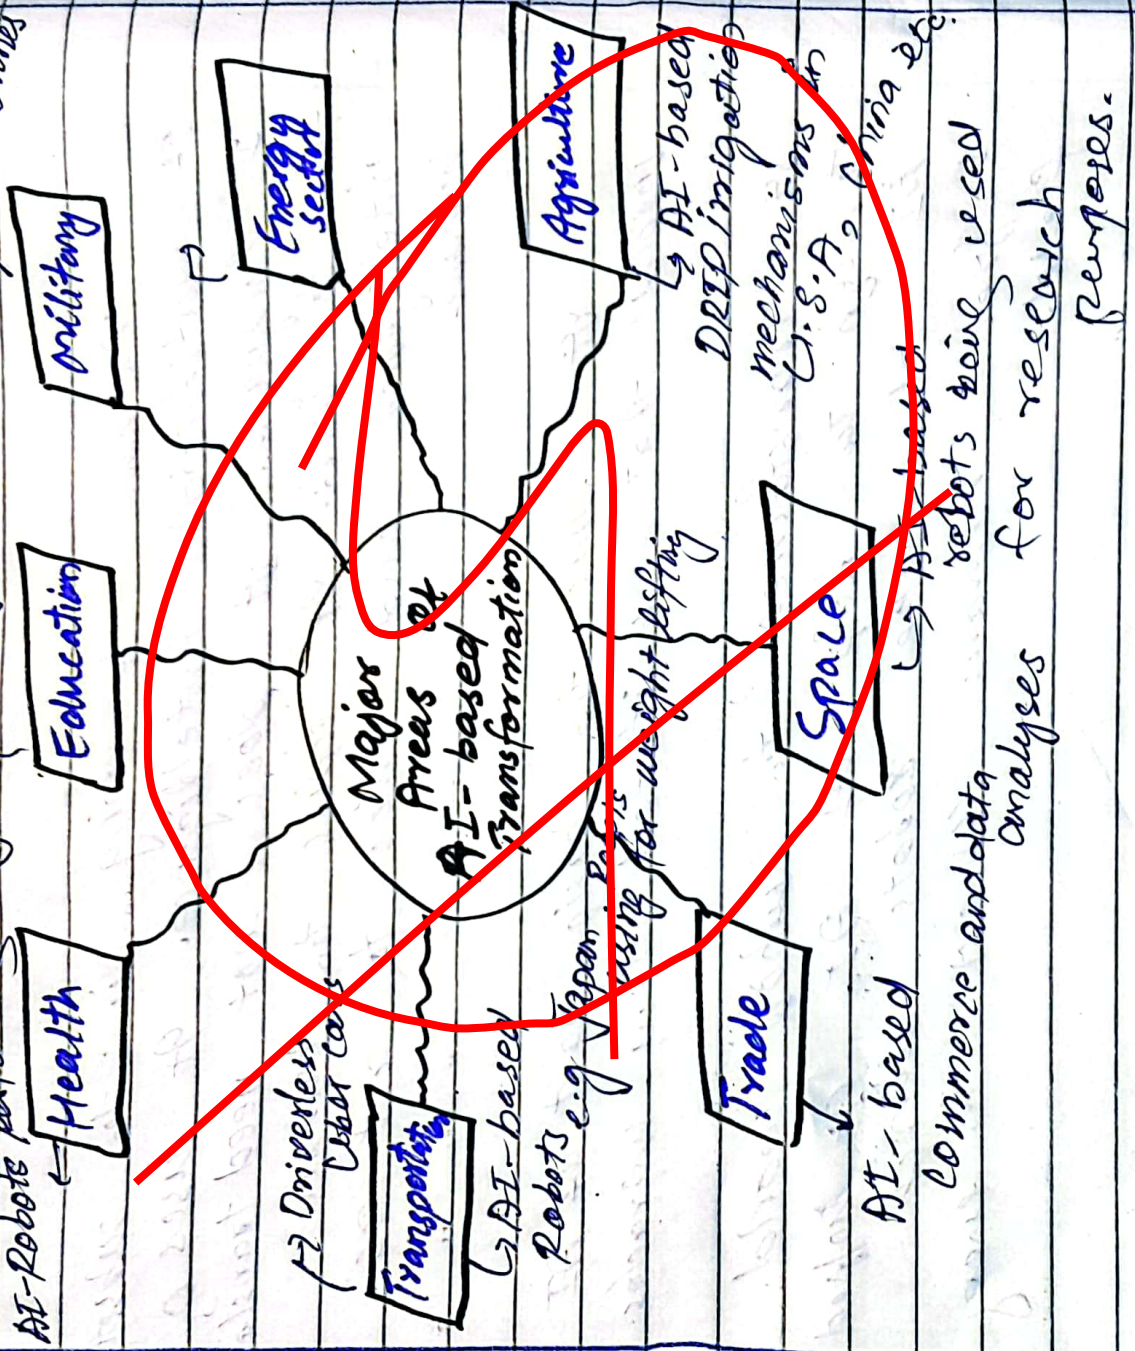 Major
Areas of
AI-based
Transformation
Health
AI-Robots
Education
military
Energy
sector
Agriculture
↳ AI-based
DRIP irrigation
mechanisms in
U.S.A, China etc.
Space
↳ AI-based
robots being used
for research
purposes.
Trade
AI-based
Commerce and data
analyses
Transportation
Driverless
Uber cars
↳ AI-based
Robots
e.g Japan
using for weight lifting